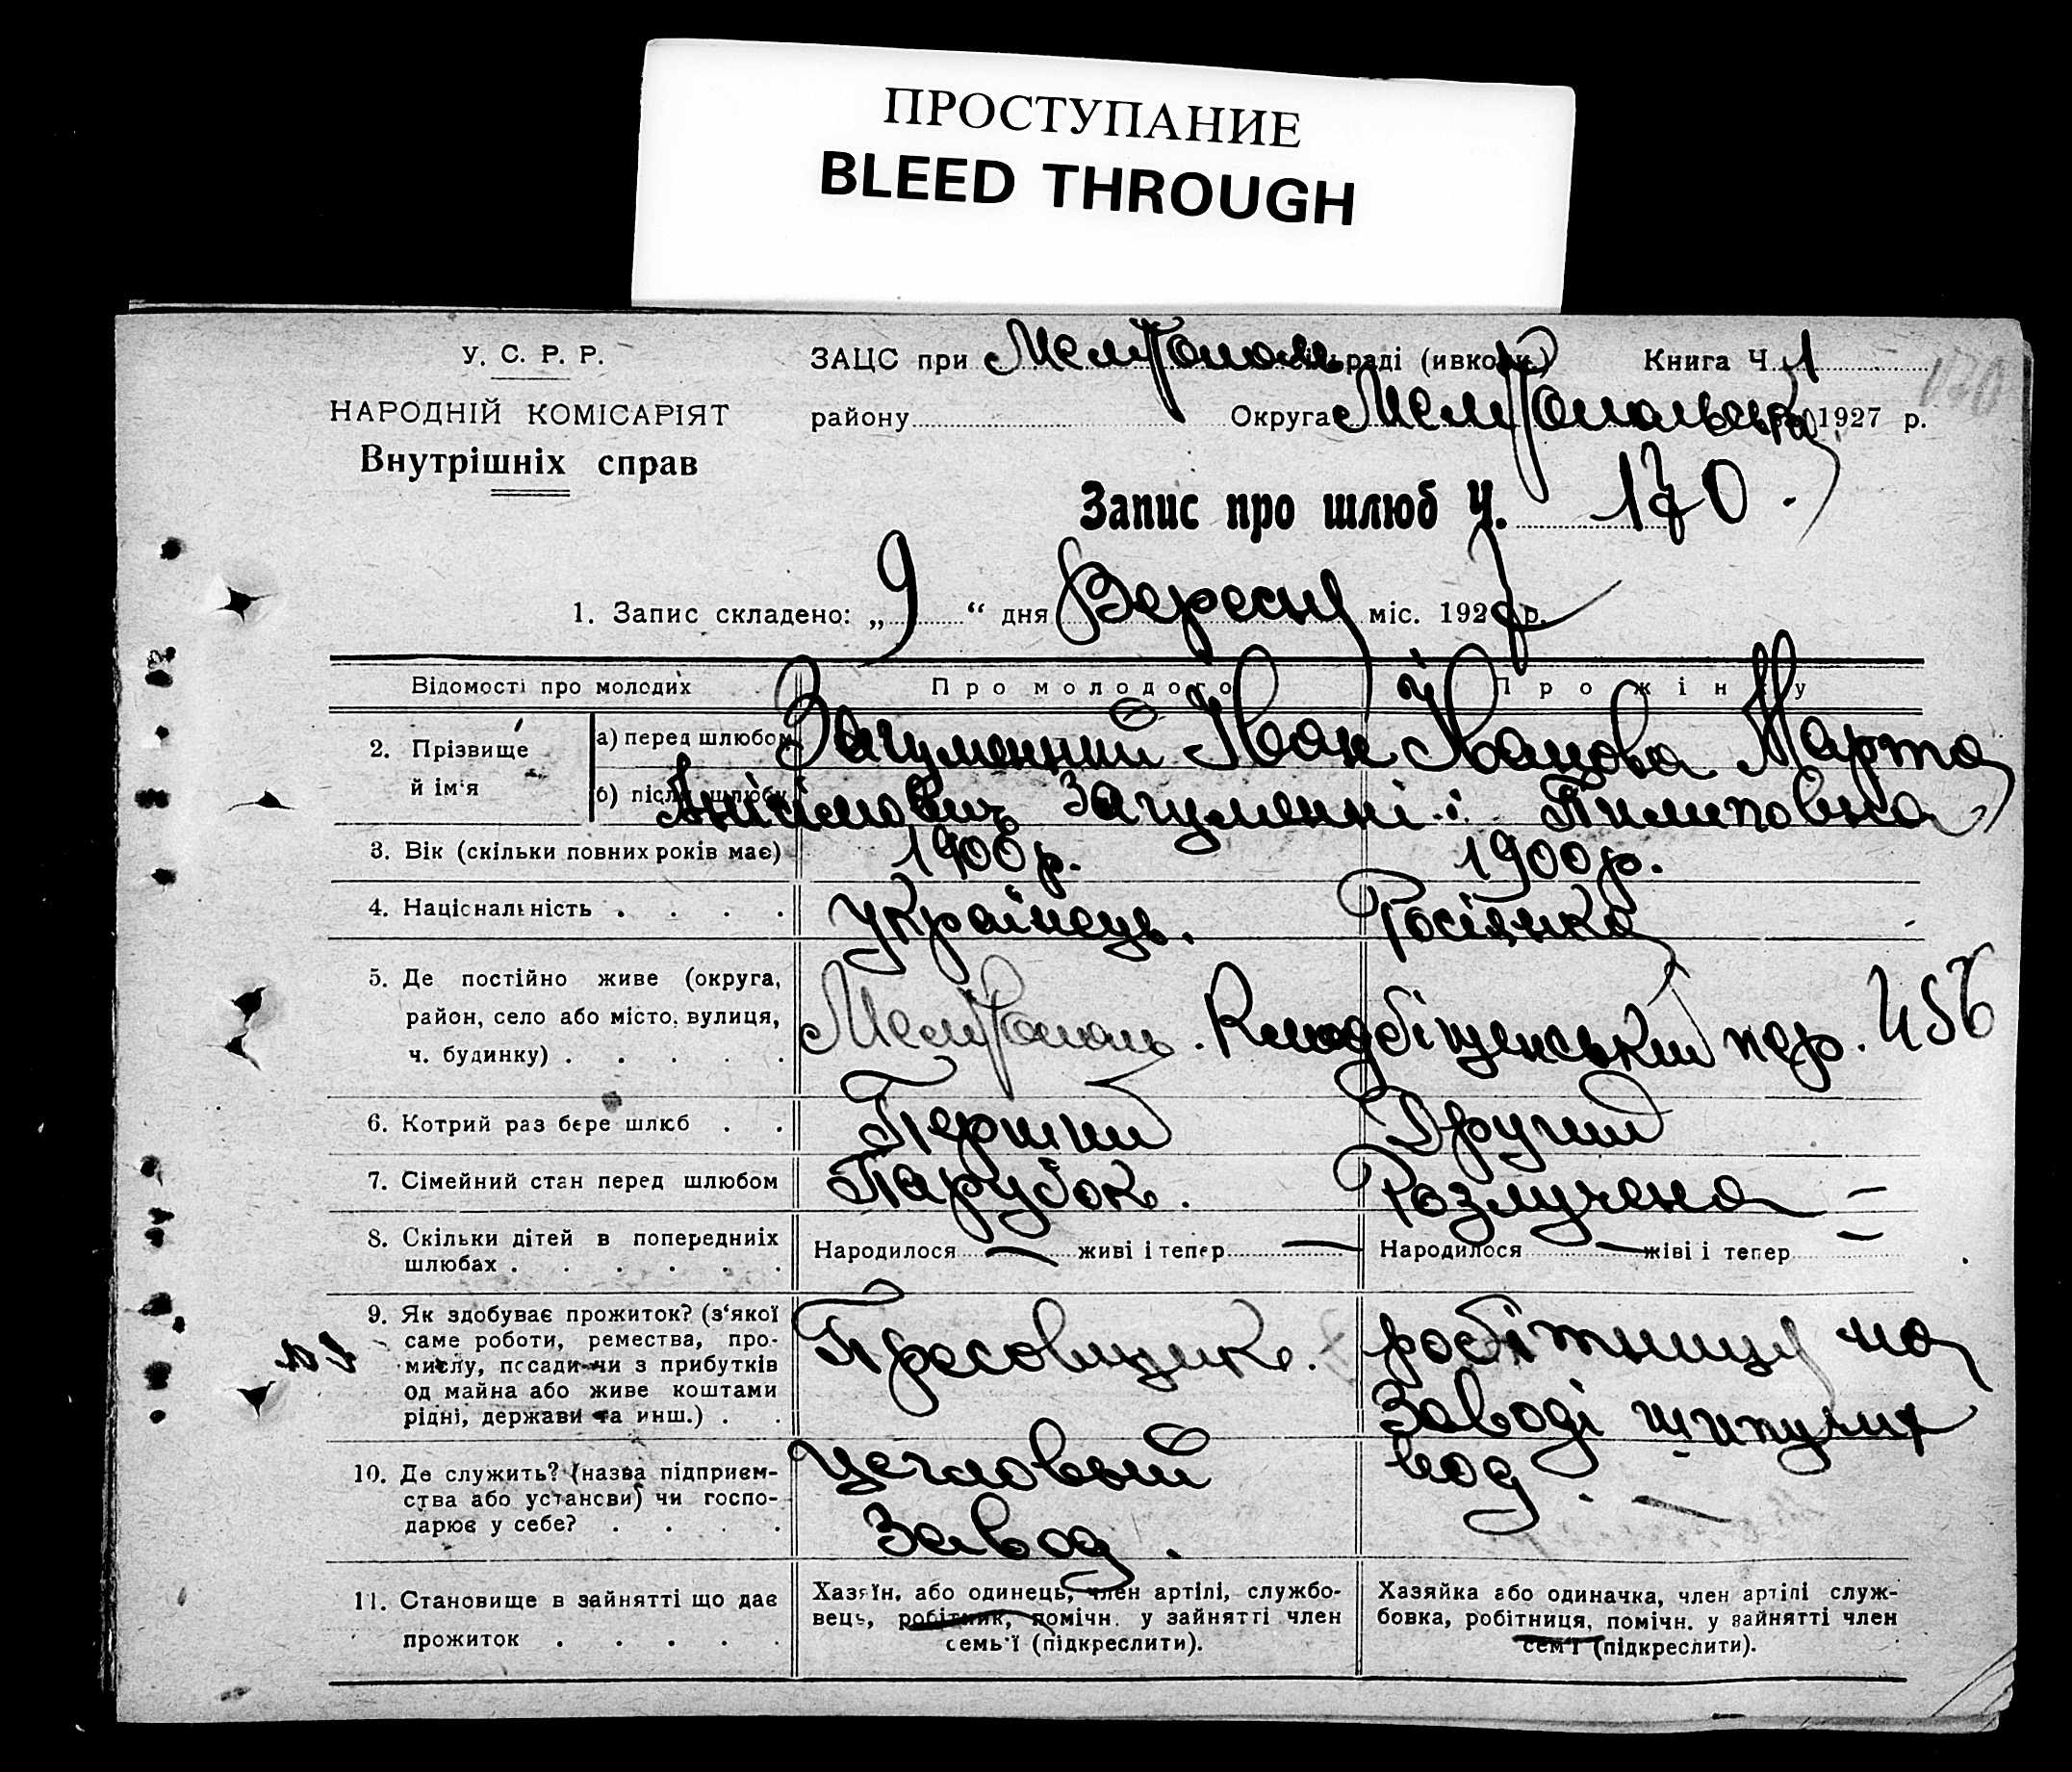 ПРОСТУПАНИЕ
BLEED THROUGH
У. С. Р. Р.
НАРОДНІЙ КОМІСАРІЯТ
Внутрішніх справ
ЗАЦС при Мелітополь раді (ивкоми) Книга Ч. 1
району Округа Мелітопольська 1927 р.
Запис про шлюб Ч. 170.
1. Запис складено: „9“ дня Вересня міс. 1927 р.
Відомості про молодих Про молодого Про жінку
2. Прізвище й ім'я
а) перед шлюбом Загуменний Іван Іванова Марта
б) після шлюбу Анісімович Загуменні Пилиповна
3. Вік (скільки повних років має) 1900 р. 1900 р.
4. Національність . . . . Українець. Росіянка
5. Де постійно живе (округа,
район, село або місто, вулиця,
ч. будинку) . . . . .
Мелітополь. пер. Ч 56
6. Котрий раз бере шлюб . . Перший Другий
7. Сімейний стан перед шлюбом Парубок. Розлучена
8. Скільки дітей в попередніх
шлюбах . . . . . .
Народилося — живі і тепер — Народилося — жіві і тепер
9. Як здобуває прожиток? (з'якої
саме роботи, ремества, про-
мислу, посади чи з прибутків
од майна або живе коштами
рідні, держави та инш.) . .
Пресовщик. робітниця на
Заводі шипучих
вод.
10. Де служить? (назва підприєм-
ства або установи) чи госпо-
дарює у себе? . . . .
Цегловый
Завод. —
11. Становище в зайнятті що дає
прожиток . . . . .
Хазяїн, або одинець, член артілі, службо-
вець, робітник, помічн. у зайнятті член
семь'ї (підкреслити).
Хазяйка або одиначка, член артілі служ-
бовка, робітниця, помічн. у зайнятті член
сем'ї (підкреслити).